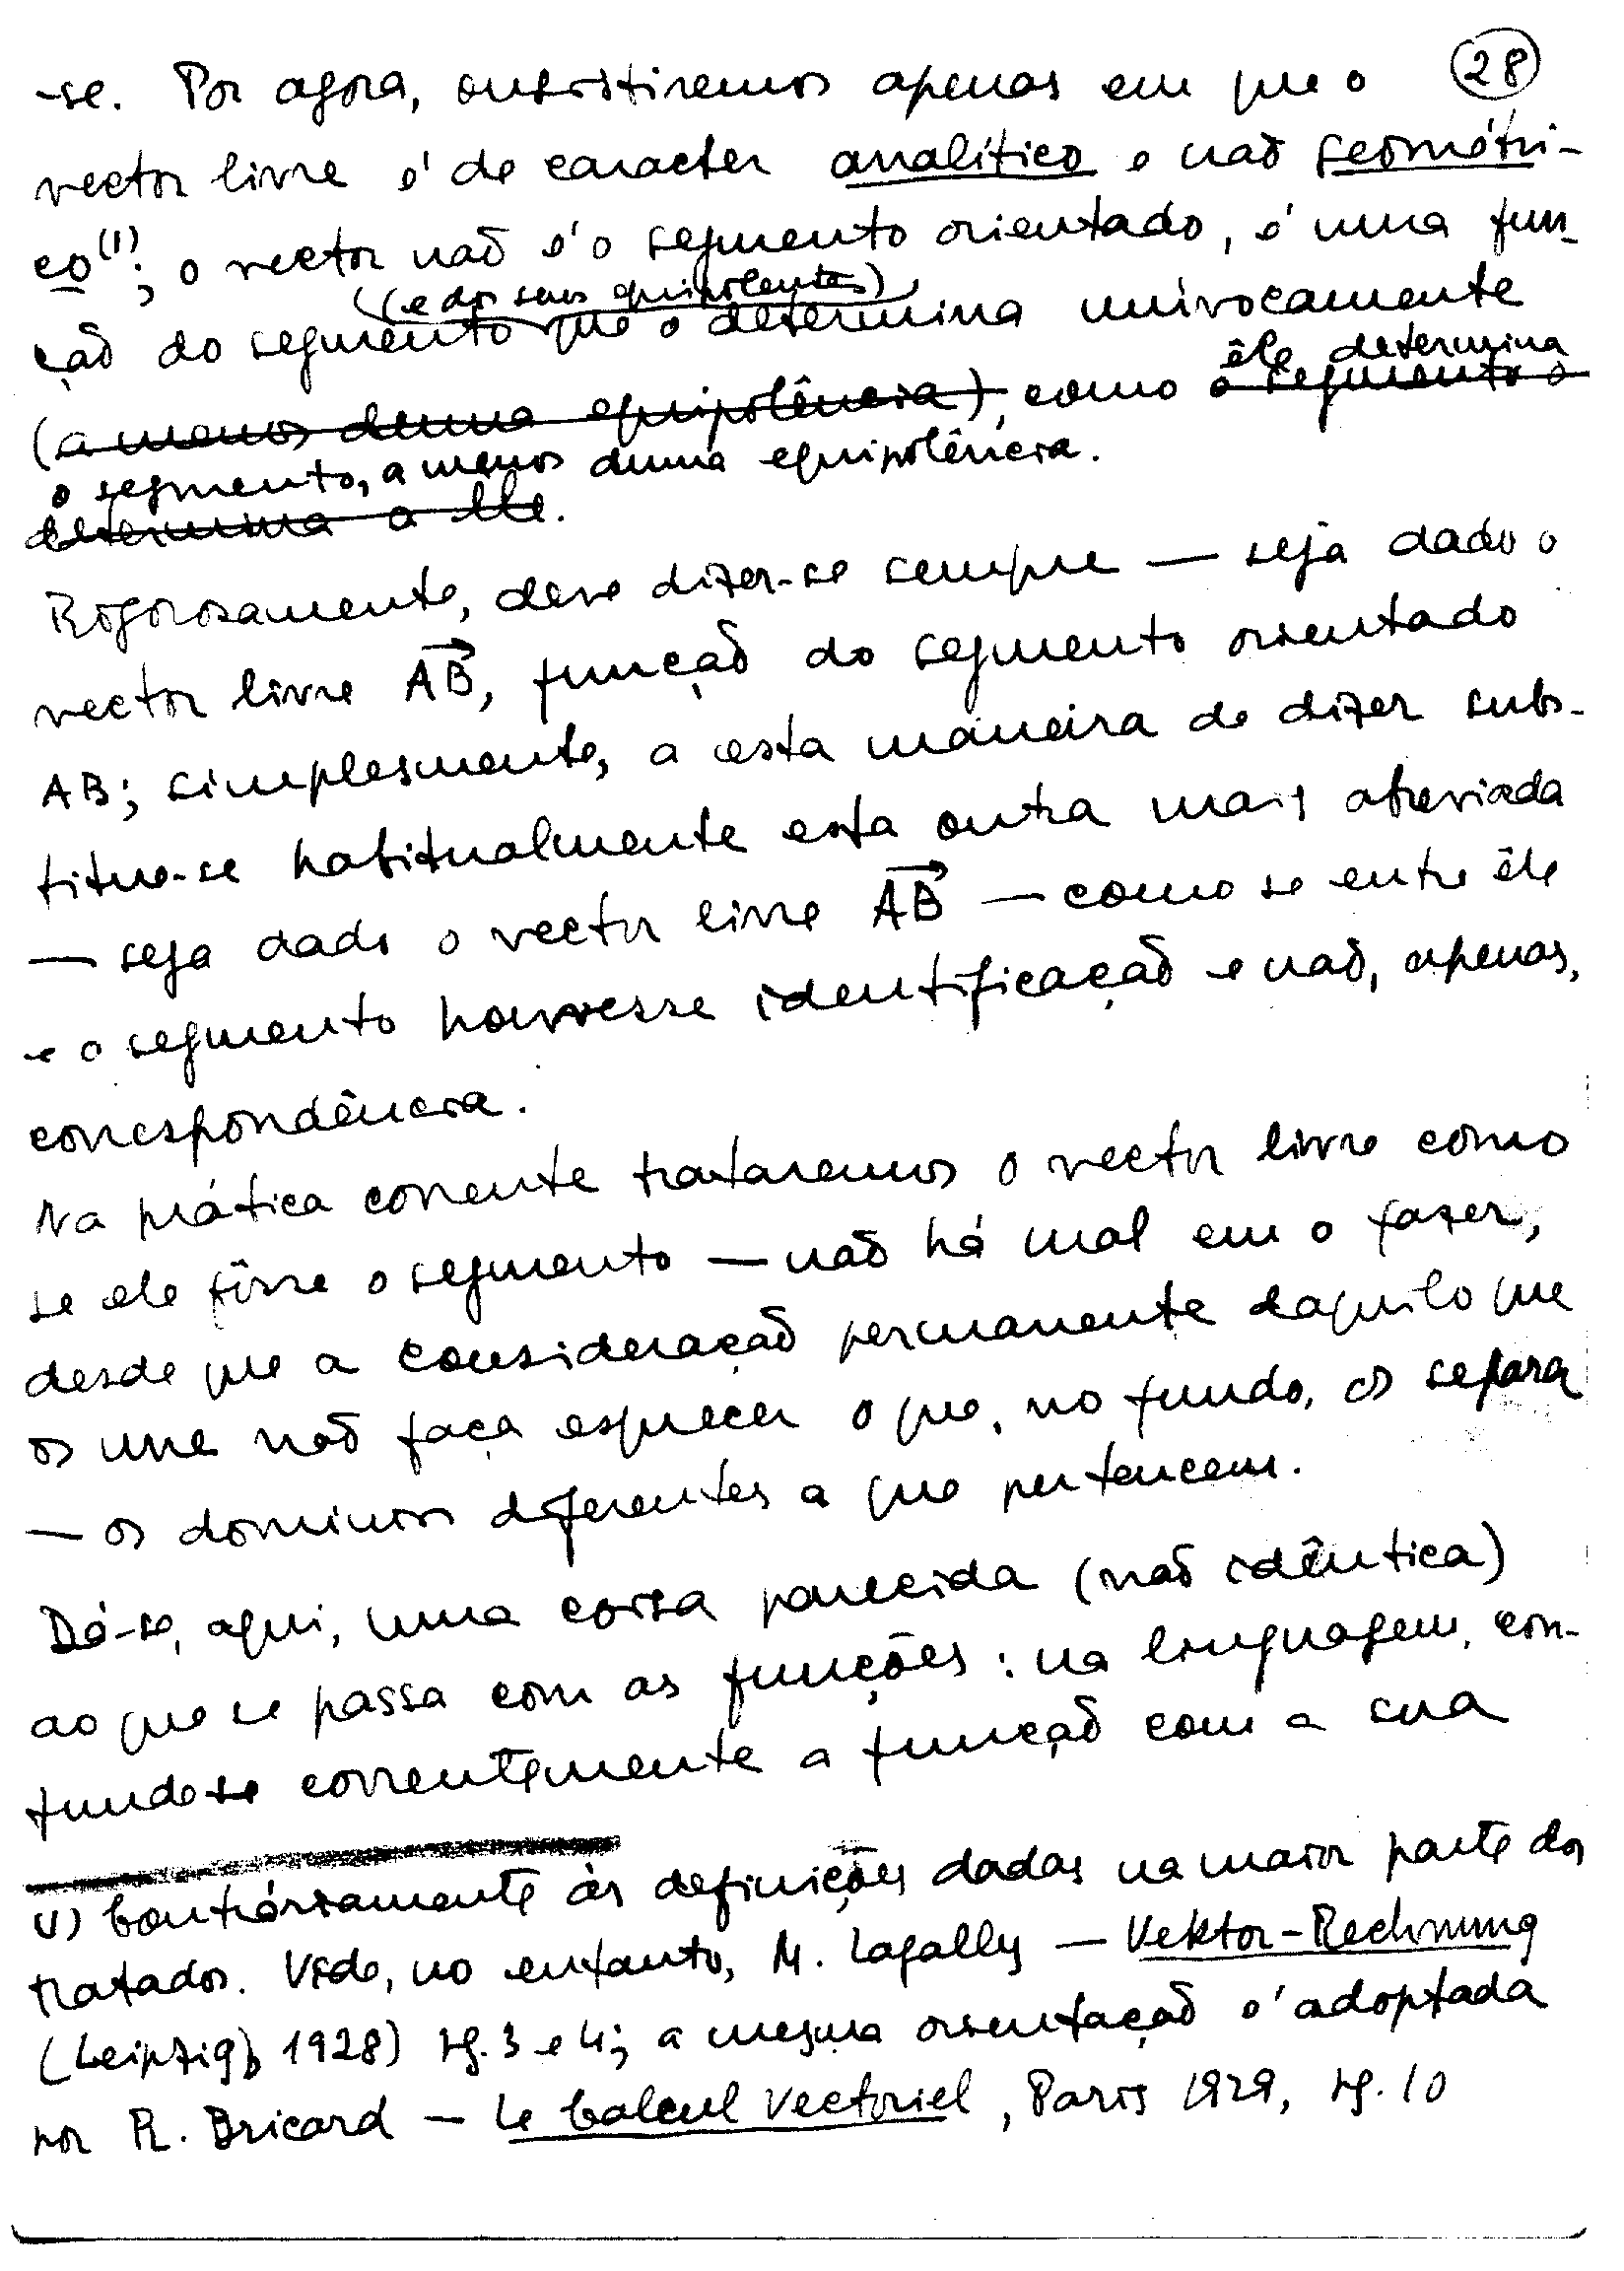 -se. Por agora, insistiremos apenas em que o (28)
vector livre é de caracter analítico e não geométri-
co(1); o vector não é o segmento orientado, é uma fun-
(e dos seus equipolentes)
ção do segmento que o determina univocamente
êle determina
(a menos duma equipolência), como o segmento o
o segmento, a menos duma equipolência.
determina a êle.
Rigorosamente, deve dizer-se sempre — seja dado o
vector livre A͞B͞, função do segmento orientado
AB; simplesmente, a esta maneira de dizer subs-
titue-se habitualmente esta outra mais abreviada
— seja dado o vector livre A͞B͞ — como se entre êle
e o segmento houvesse identificação e não, apenas,
correspondência.
Na prática corrente trataremos o vector livre como
se ele fôsse o segmento — não há mal em o fazer,
desde que a consideração permanente daquilo que
os une não faça esquecer o que, no fundo, os separa
— os dominios diferentes a que pertencem.
Dá-se, aqui, uma coisa parecida (não idêntica)
ao que se passa com as funções: na linguagem, con-
funde-se correntemente a função com a sua
(1) Contráriamente às definições dadas na maior parte dos
tratados. Vide, no entanto, M. Lagally — Vektor-Rechnung
(Leipzig, 1928) pg. 3 e 4; a mesma orientação é adoptada
por R. Bricard — Le Calcul Vectoriel, Paris 1929, pg. 10